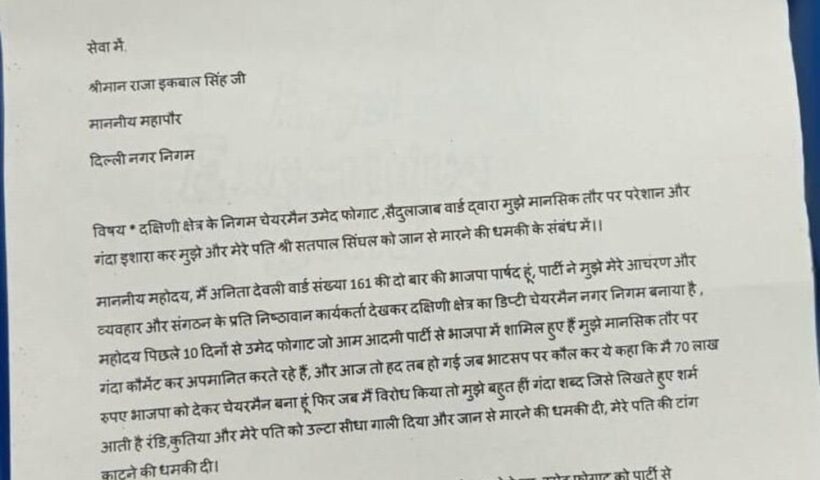 सेवा में.
श्रीमान राजा इकबाल सिंह जी
माननीय महापौर
दिल्ली नगर निगम
विषय * दक्षिणी क्षेत्र के निगम चेयरमैन उमेद फोगाट ,सैदुलाजाब वार्ड द्वारा मुझे मानसिक तौर पर परेशान और
गंदा इशारा कर मुझे और मेरे पति श्री सतपाल सिंघल को जान से मारने की धमकी के संबंध में।।
माननीय महोदय, मैं अनिता देवली वार्ड संख्या 161 की दो बार की भाजपा पार्षद हूं, पार्टी ने मुझे मेरे आचरण और
व्यवहार और संगठन के प्रति निष्ठावान कार्यकर्ता देखकर दक्षिणी क्षेत्र का डिप्टी चेयरमैन नगर निगम बनाया है ,
महोदय पिछले 10 दिनों से उमेद फोगाट जो आम आदमी पार्टी से भाजपा में शामिल हुए हैं मुझे मानसिक तौर पर
गंदा कौमेंट कर अपमानित करते रहे हैं, और आज तो हद तब हो गई जब भाटसप पर कौल कर ये कहा कि मै 70 लाख
रुपए भाजपा को देकर चेयरमैन बना हूं फिर जब मैं विरोध किया तो मुझे बहुत हीं गंदा शब्द जिसे लिखते हुए शर्म
आती है रंडि,कुतिया और मेरे पति को उल्टा सीधा गाली दिया और जान से मारने की धमकी दी, मेरे पति की टांग
काटने की धमकी दी।
उमेद फोगाट को पार्टी से